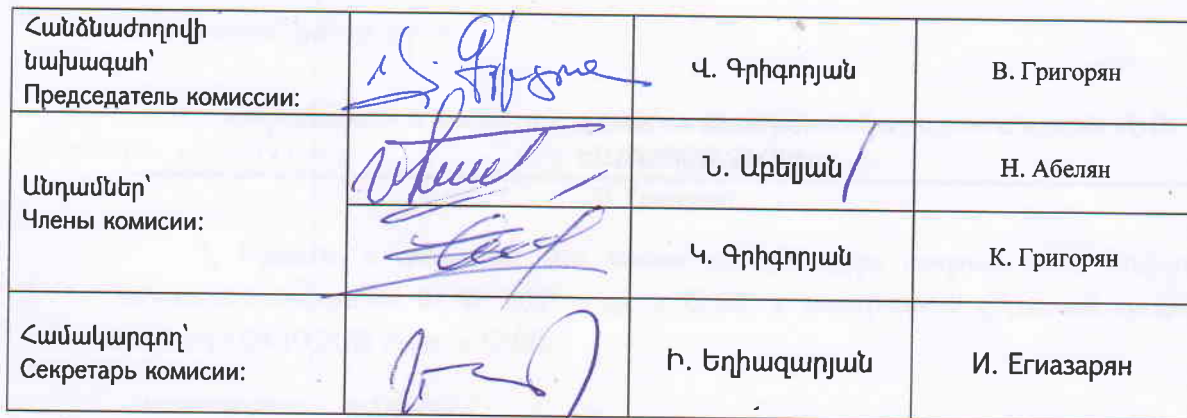 Հանձնաժողովի
նախագահ՝
Председатель комиссии:
Վ. Գրիգորյան
В. Григорян
Անդամներ՝
Члены комисии:
Ն. Աբելյան
Н. Абелян
Կ. Գրիգորյան
К. Григорян
Համակարգող՝
Секретарь комисии:
Ի. Եղիազարյան
И. Егиазарян